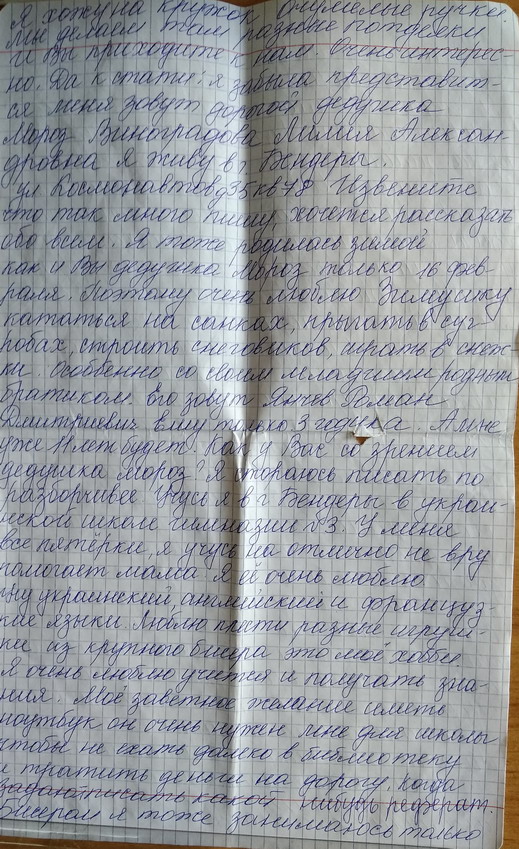 Я хожу на кружок очумелые ручки
Мы делаем там разные поделки
и Вы приходите к нам. Очень интерес-
но. Да к стати: я забыла представит-
ся меня зовут дорогой дедушка
Мороз Виноградова Лилия Алексан-
дровна я живу в г. Бендеры.
ул Космонавтов д35 кв78 Извените
что так много пишу, хочется рассказать
обо всем. Я тоже родилась зимой
как и Вы дедушка Мороз только 16 фев-
раля. Поэтому очень люблю Зимушку
кататься на санках, прыгать в суг
робах, строить снеговиков, играть в снеж
ки. Особенно со своим младшим родным
братиком. Его зовут Янчев Роман
Дмитриевич Ему только 3 годика. А мне
уже 11 лет будет. Как у Вас со зрением
дедушка Мороз? Я стораюсь писать по
разборчивее Учусь я в г. Бендеры в украи-
нской школе гимназии №3. У меня
все пятёрки, я учусь на отлично не вру
помогает мама. Я её очень люблю
учу украинский, английский и француз-
кие языки. Люблю плести разные игруш-
ки из крупного бисера это моё хобби.
Я очень люблю учится и получать зна-
ния. Моё заветное желание иметь
ноутбук он очень нужен мне для школы
чтобы не ехать далеко в библиотеку
и тратить деньги на дорогу, когда
писать какой нибудь реферат.
Бисером я тоже занимаюсь только